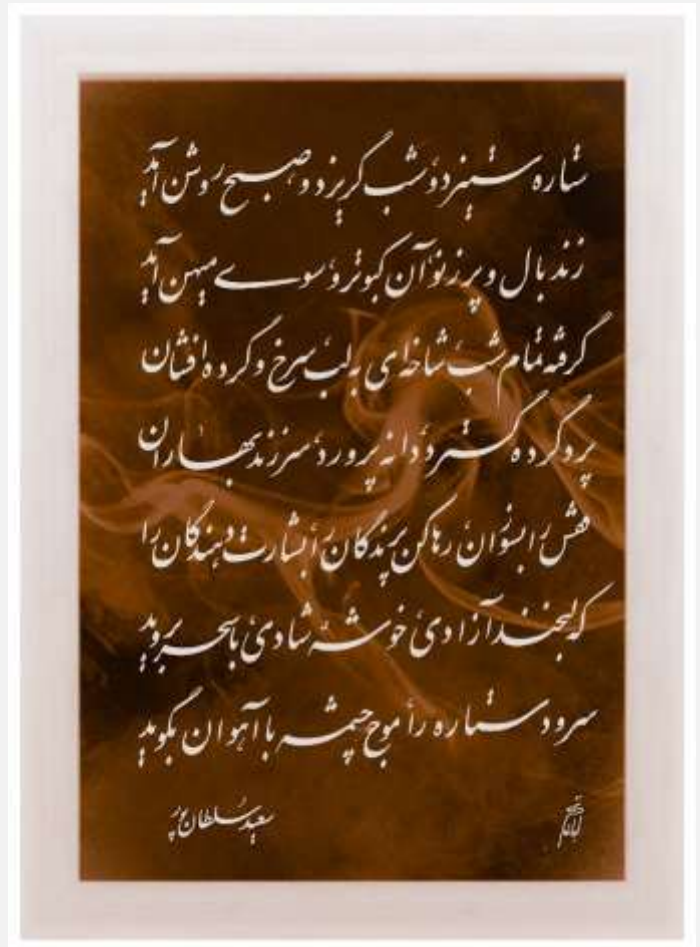 ستاره ستیزد و شب گریزد و صبح روشن آید
زند بال و پر ز نو آن کبوتر و سوی میهن آید
گرفته تمام شب شاخه‌ای به لب سرخ و گرده افشان
پرد گرده گسترد دانه پرورد سر زند بهاران
قفس را بسوزان رها کن پرندگان را بشارت دهندگان را
که لبخند آزادی خوشه شادی با سحر بروید
سرود ستاره را موج چشمه با آهوان بگوید
سعید سلطان پور